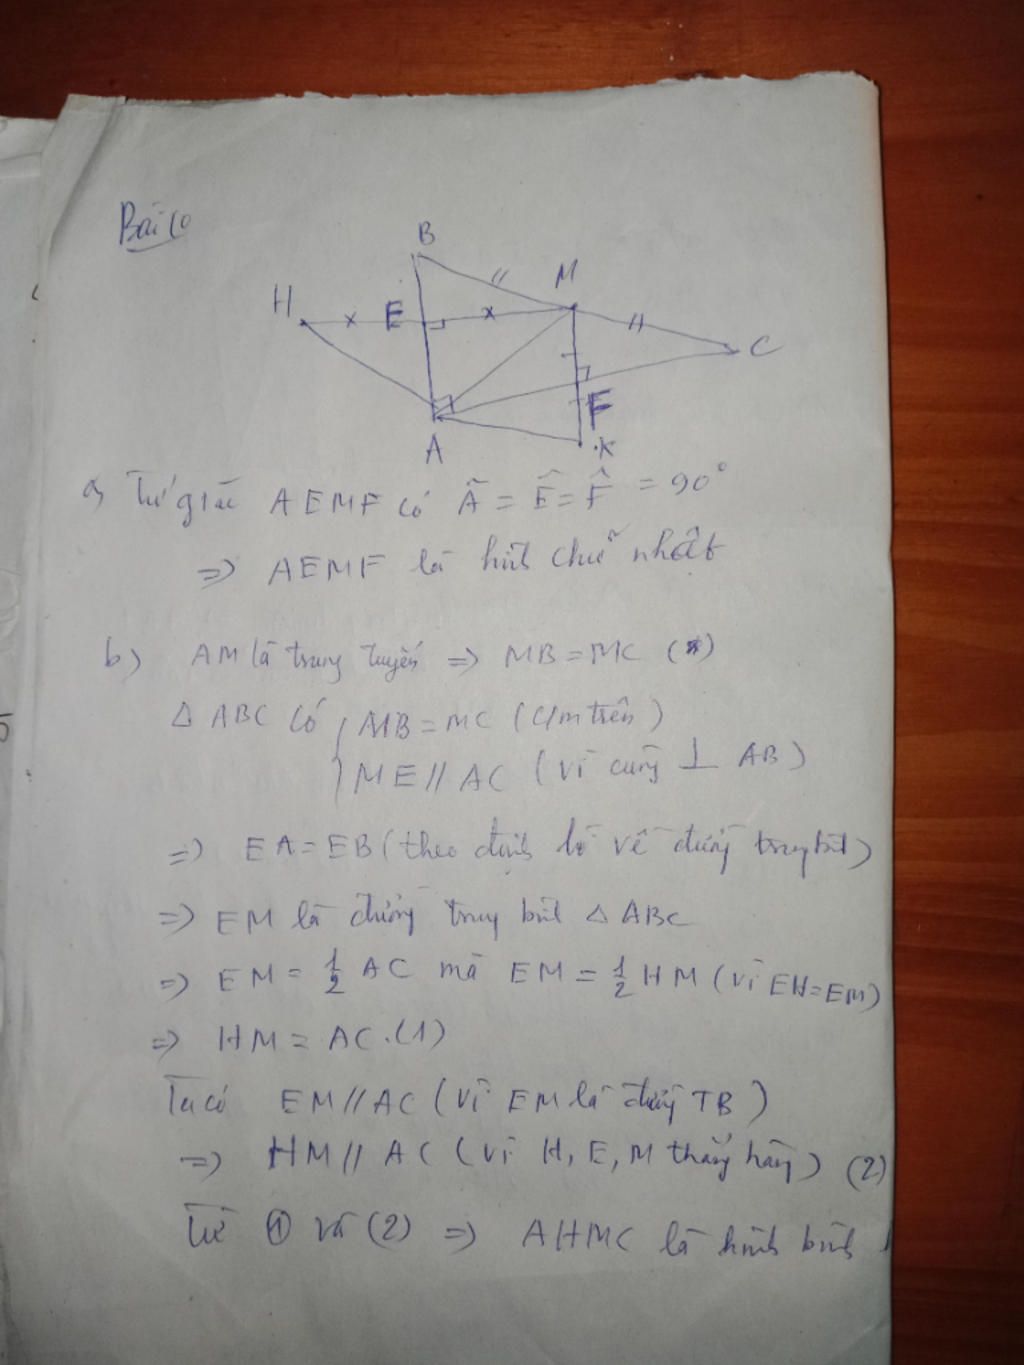 Bài 10
B
H E M
C
F
A K
a, Tứ giác AEMF có Â = Ê = F̂ = 90°
=> AEMF là hình chữ nhật
b) AM là trung tuyến => MB = MC (*)
Δ ABC có { MB = MC (c/m trên)
ME // AC (vì cùng ⊥ AB)
=> EA = EB (theo định lí về đường trung bình)
=> EM là đường trung bình Δ ABC
=> EM = 1/2 AC mà EM = 1/2 HM (vì EH = EM)
=> HM = AC. (1)
Ta có EM // AC (vì EM là đường TB)
=> HM // AC (vì H, E, M thẳng hàng) (2)
Từ ① và (2) => AHMC là hình bình